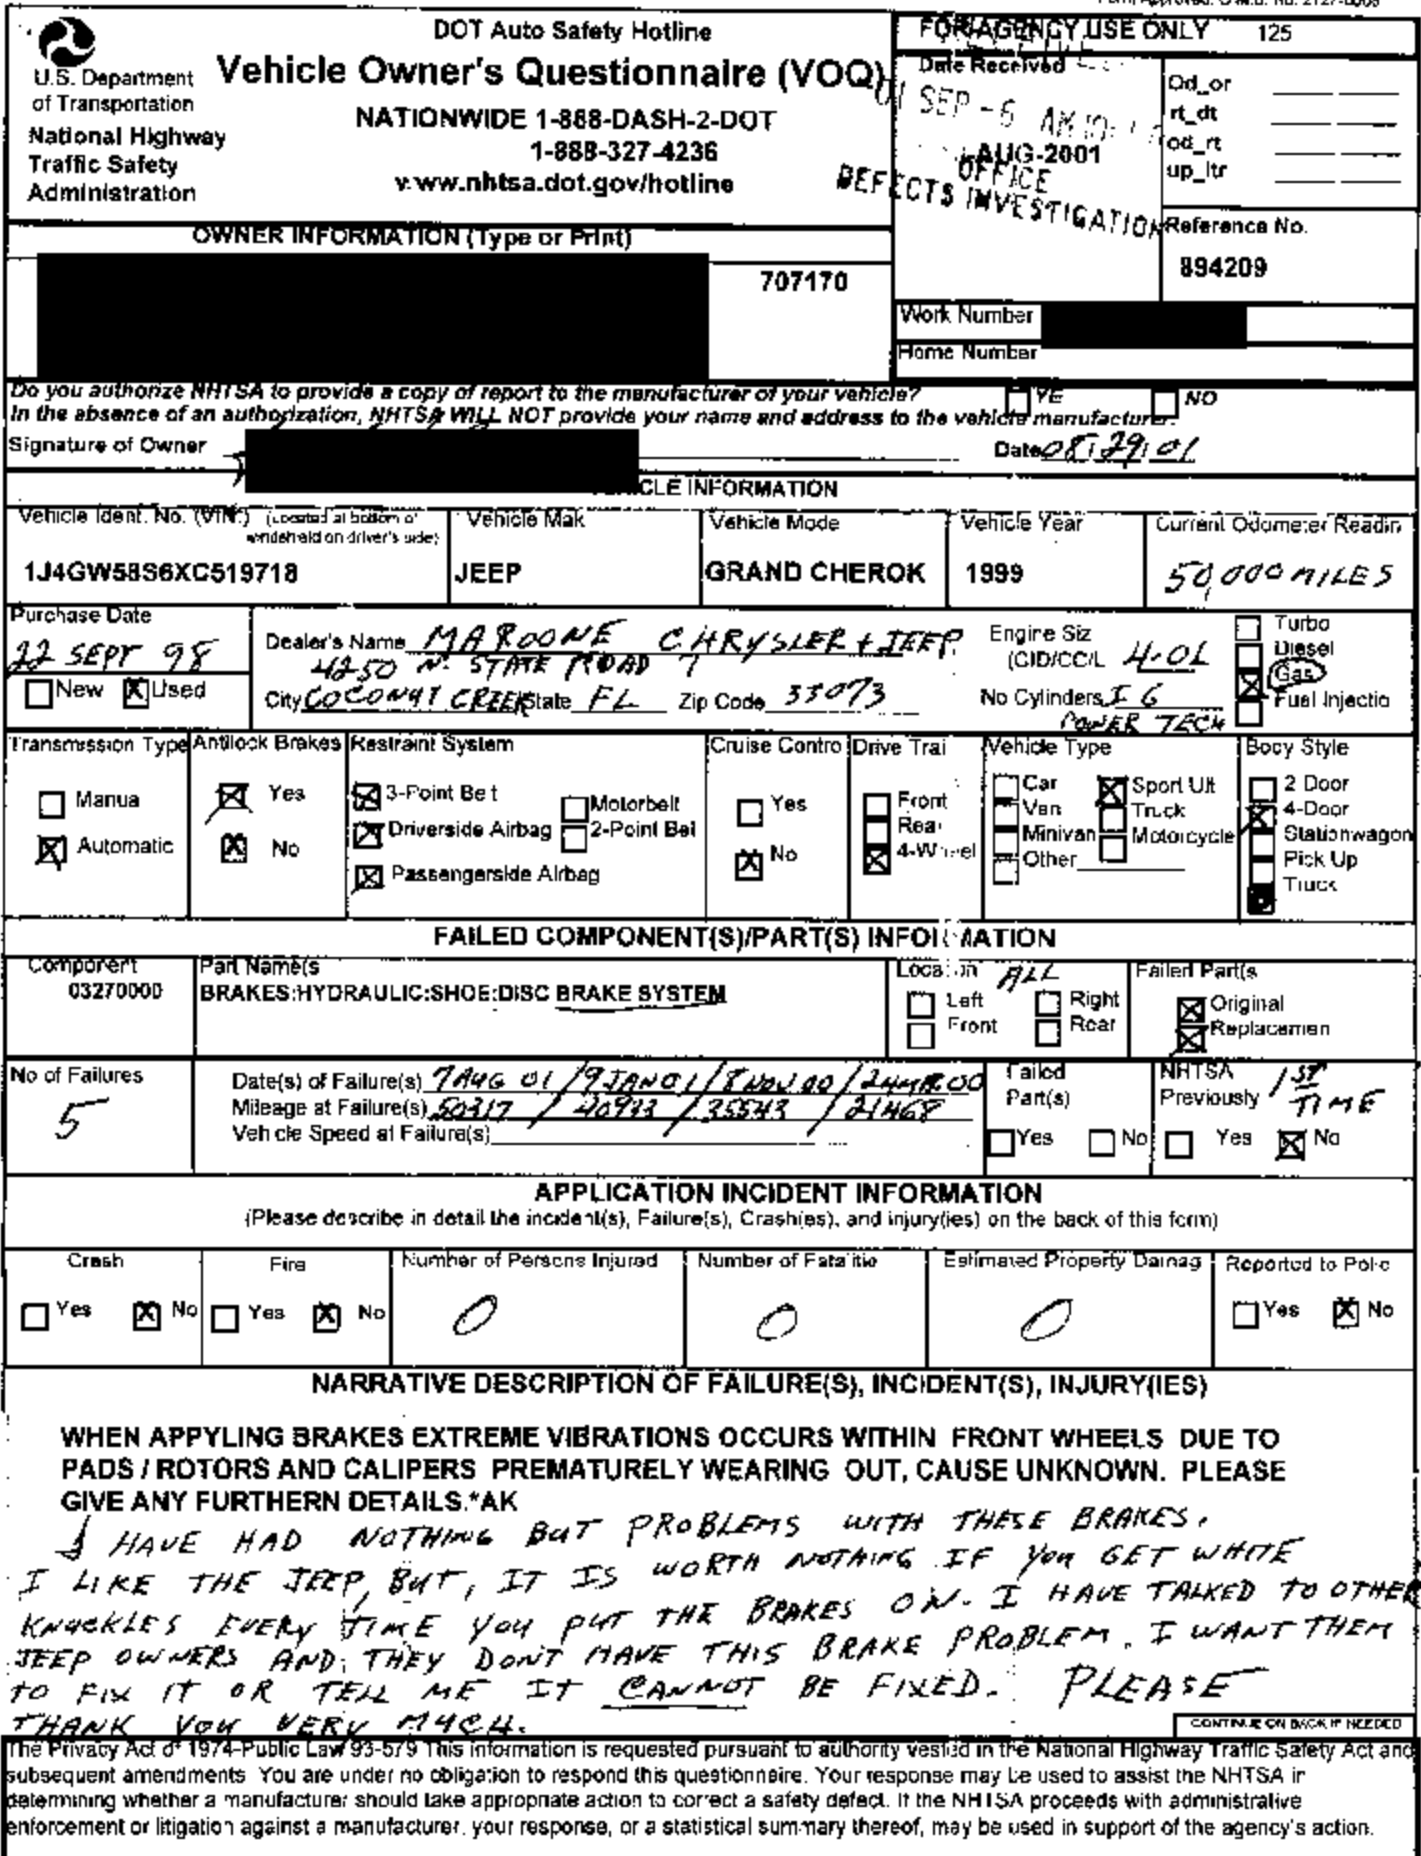 Form Approved: O.M.B. No. 2127-0008
DOT Auto Safety Hotline
Vehicle Owner's Questionnaire (VOQ)
NATIONWIDE 1-888-DASH-2-DOT
1-888-327-4236
www.nhtsa.dot.gov/hotline
U.S. Department
of Transportation
National Highway
Traffic Safety
Administration
FOR AGENCY USE ONLY 125
Date Received
01 SEP -6 AM 10:
AUG-2001
OFFICE
DEFECTS INVESTIGATION
Od_or
rt_dt
od_rt
up_ltr
Reference No.
894209
OWNER INFORMATION (Type or Print)
707170
Work Number
Home Number
Do you authorize NHTSA to provide a copy of report to the manufacturer of your vehicle? YE NO
In the absence of an authorization, NHTSA WILL NOT provide your name and address to the vehicle manufacturer.
Signature of Owner Date 08/29/01
CLE INFORMATION
Vehicle Ident. No. (VIN.) (Located at bottom of
windshield on driver's side)
1J4GW58S6XC519718
Vehicle Mak
JEEP
Vehicle Mode
GRAND CHEROK
Vehicle Year
1999
Current Odometer Readin
50,000 MILES
Purchase Date
22 SEPT 98
New Used
Dealer's Name MAROONE CHRYSLER + JEEP
4250 N. STATE ROAD 7
City COCONUT CREEK State FL Zip Code 33073
Engine Siz
(CID/CC/L 4.0L
No Cylinders I 6
POWER TECH
Turbo
Diesel
Gas
Fuel Injectio
Transmission Type
Manua
Automatic
Antilock Brakes
Yes
No
Restraint System
3-Point Belt
Driverside Airbag
Passengerside Airbag
Motorbelt
2-Point Bel
Cruise Contro
Yes
No
Drive Trai
Front
Rear
4-Wheel
Vehicle Type
Car
Van
Minivan
Other
Sport Ult
Truck
Motorcycle
Body Style
2 Door
4-Door
Stationwagon
Pick Up
Truck
FAILED COMPONENT(S)/PART(S) INFORMATION
Component
03270000
Part Name(s
BRAKES:HYDRAULIC:SHOE:DISC BRAKE SYSTEM
Location ALL
Left Right
Front Rear
Failed Part(s
Original
Replacemen
No of Failures
5
Date(s) of Failure(s) 7 AUG 01 / 9 JAN 01 / 8 NOV 00 / 24 MAR 00
Mileage at Failure(s) 50317 / 40933 / 35543 / 21468
Vehicle Speed at Failure(s)
Failed
Part(s)
Yes No
NHTSA
Previously 1ST
TIME
Yes No
APPLICATION INCIDENT INFORMATION
(Please describe in detail the incident(s), Failure(s), Crash(es), and injury(ies) on the back of this form)
Crash
Yes No
Fire
Yes No
Number of Persons Injured
0
Number of Fatalitie
0
Estimated Property Damag
0
Reported to Polic
Yes No
NARRATIVE DESCRIPTION OF FAILURE(S), INCIDENT(S), INJURY(IES)
WHEN APPYLING BRAKES EXTREME VIBRATIONS OCCURS WITHIN FRONT WHEELS DUE TO
PADS / ROTORS AND CALIPERS PREMATURELY WEARING OUT, CAUSE UNKNOWN. PLEASE
GIVE ANY FURTHERN DETAILS.*AK
I HAVE HAD NOTHING BUT PROBLEMS WITH THESE BRAKES.
I LIKE THE JEEP, BUT, IT IS WORTH NOTHING IF YOU GET WHITE
KNUCKLES EVERY TIME YOU PUT THE BRAKES ON. I HAVE TALKED TO OTHER
JEEP OWNERS AND THEY DONT HAVE THIS BRAKE PROBLEM. I WANT THEM
TO FIX IT OR TELL ME IT CANNOT BE FIXED. PLEASE
THANK YOU VERY MUCH.
CONTINUE ON BACK IF NEEDED
The Privacy Act of 1974-Public Law 93-579 This information is requested pursuant to authority vested in the National Highway Traffic Safety Act and
subsequent amendments. You are under no obligation to respond this questionnaire. Your response may be used to assist the NHTSA in
determining whether a manufacturer should take appropriate action to correct a safety defect. If the NHTSA proceeds with administrative
enforcement or litigation against a manufacturer, your response, or a statistical summary thereof, may be used in support of the agency's action.